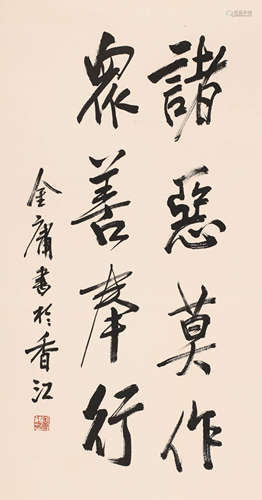 諸惡莫作
眾善奉行
金庸書於香江